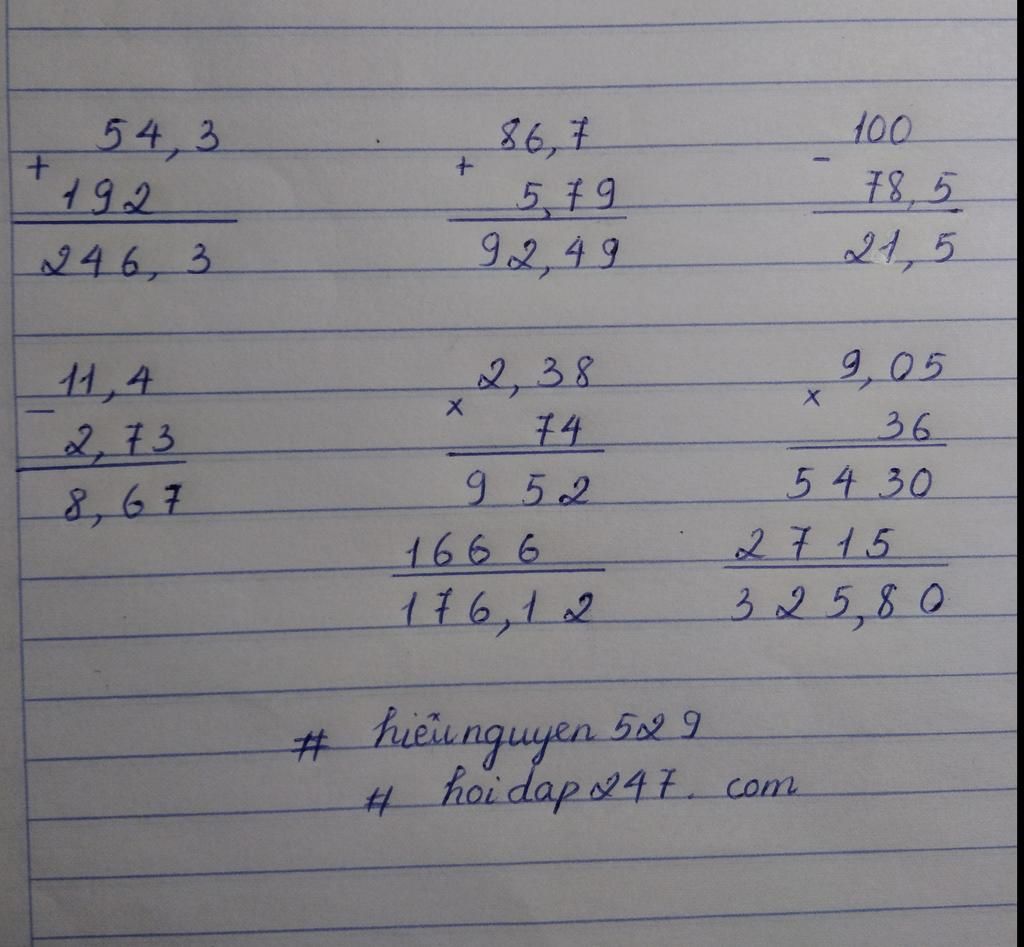 54,3 86,7 100
+ + -
192 5,79 78,5
246,3 92,49 21,5
11,4 2,38 9,05
- x x
2,73 74 36
8,67 952 5430
1666 2715
176,12 325,80
# hiếunguyen529
# hoidap247.com